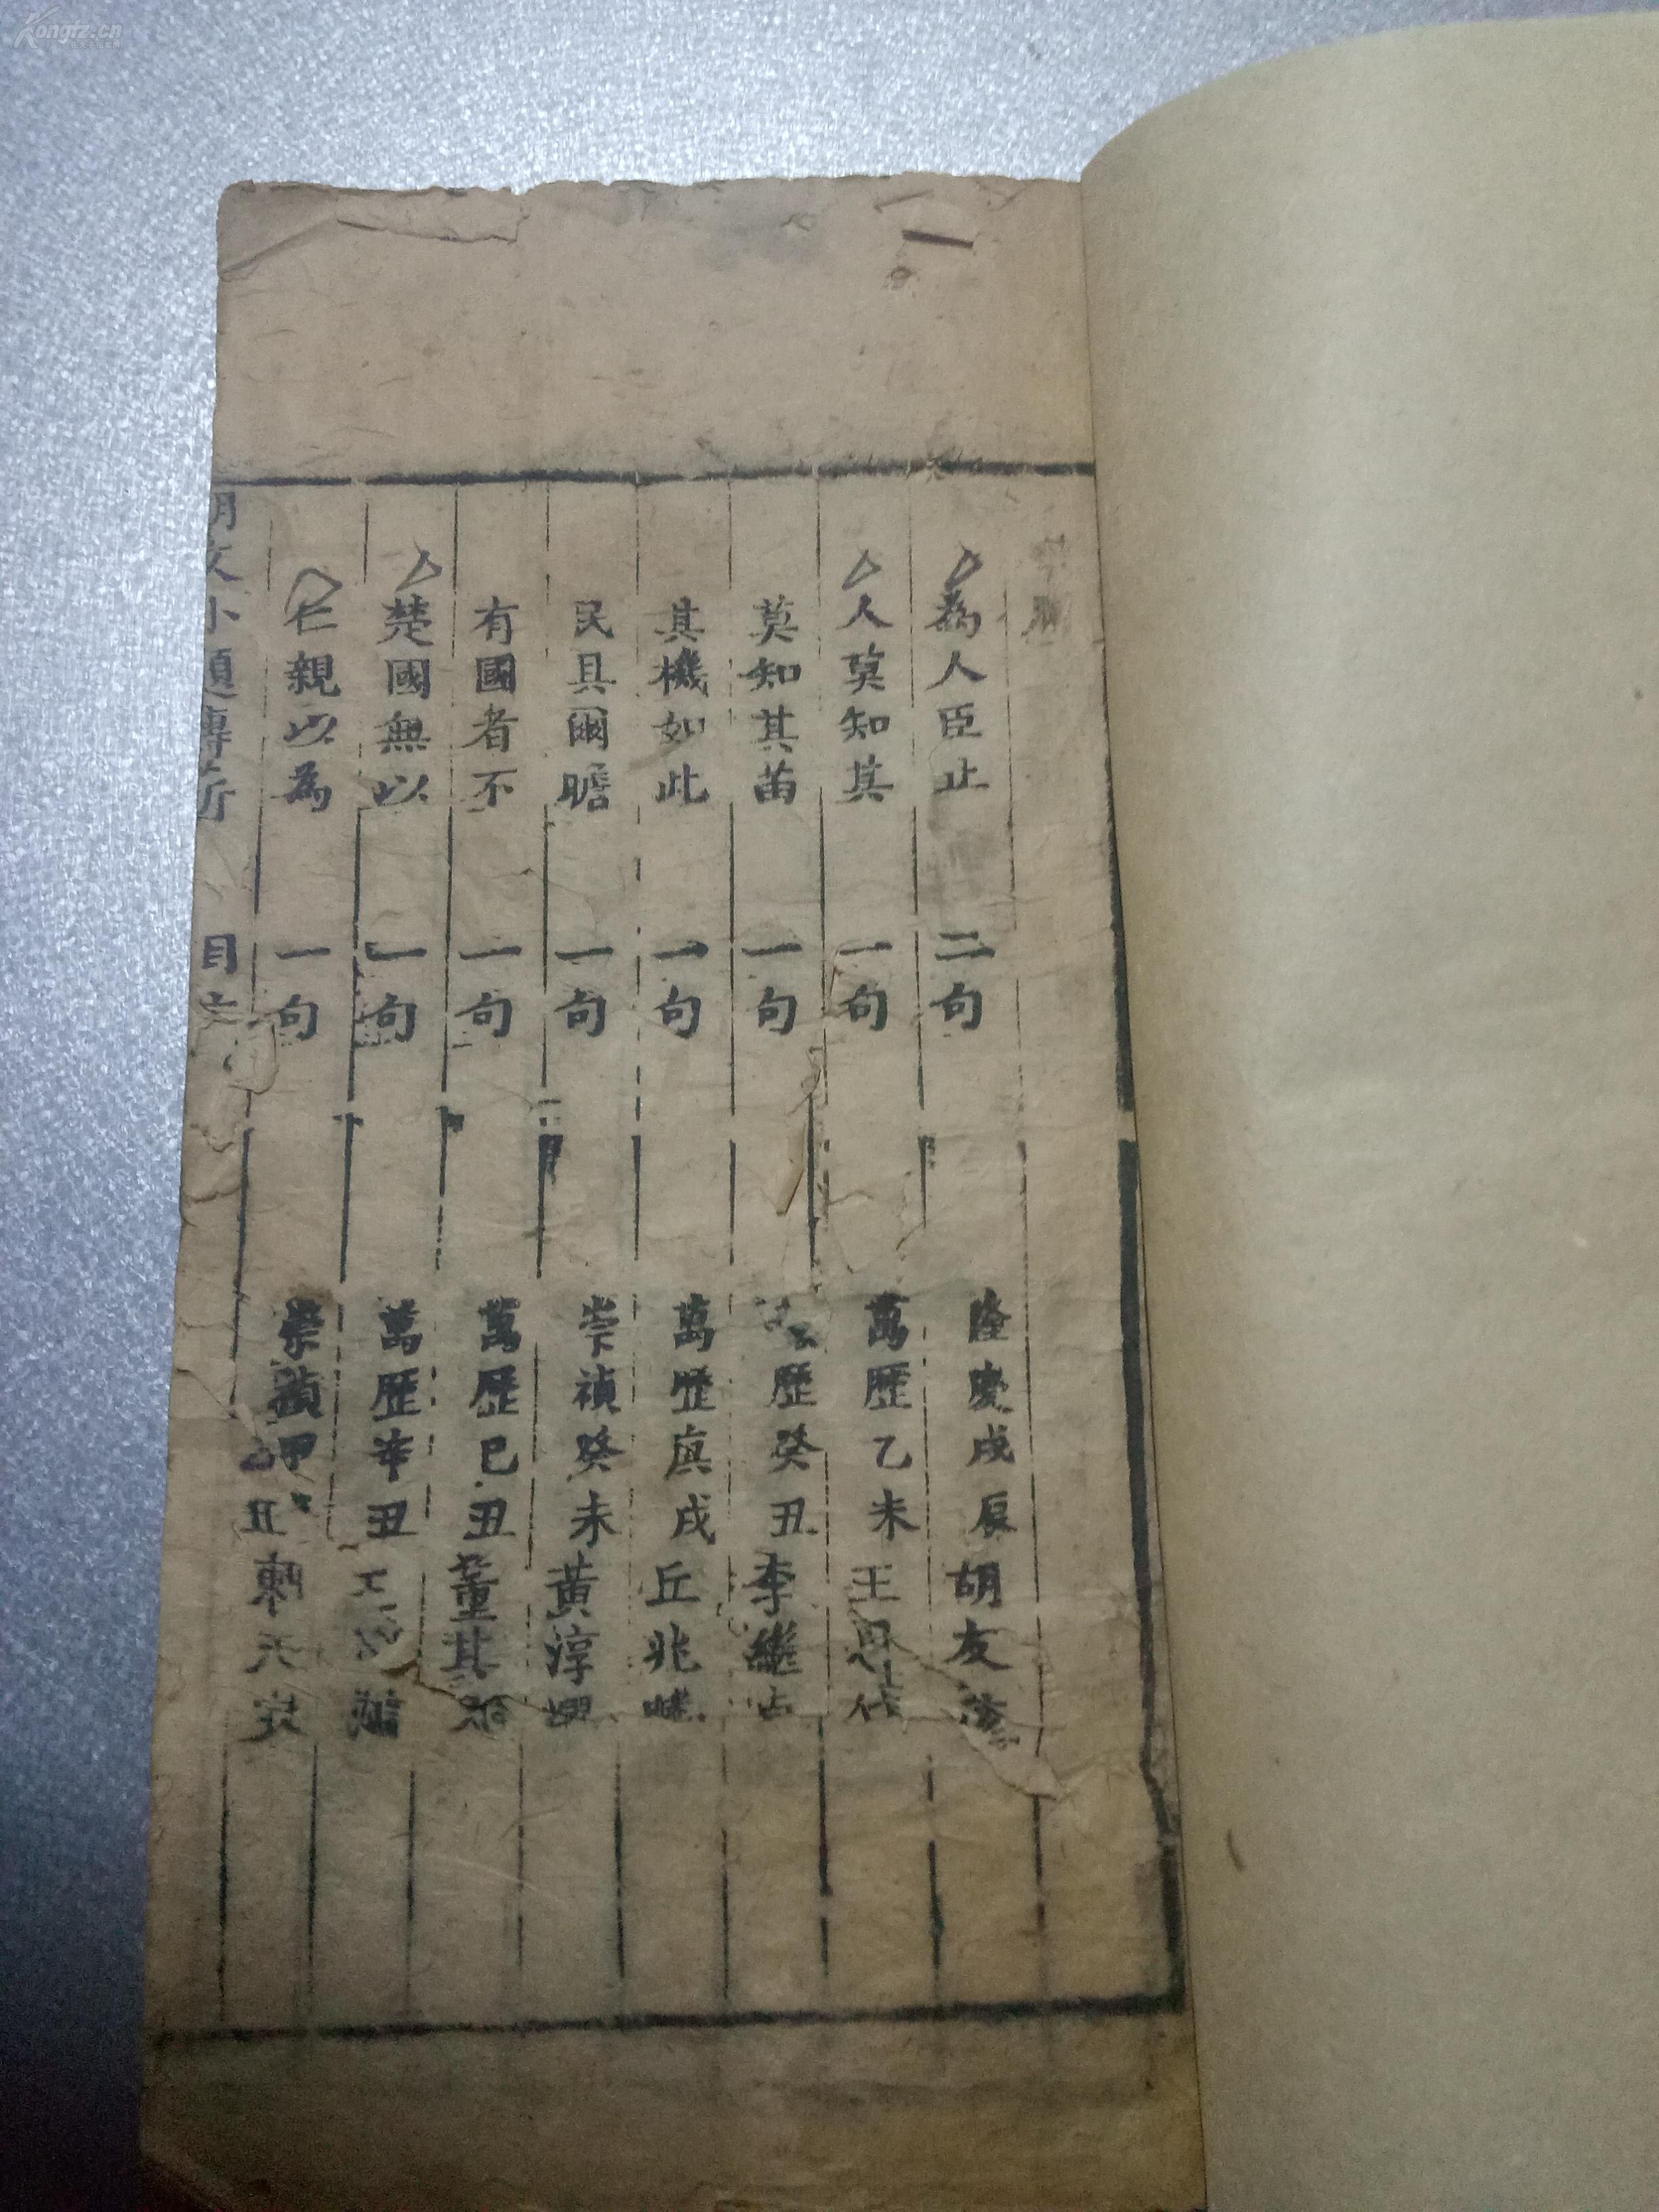 為人臣止 二句 隆慶戊辰胡友
人莫知其 一句 萬歷乙未王
莫知其苗 一句 歷癸丑李繼
其機如此 一句 萬歷庚戌丘兆
民具爾瞻 一句 崇禎癸未黃淳
有國者不 一句 萬歷己丑董其
楚國無以 一句 萬歷辛丑
仁親以為 一句 崇禎
明文小題傳薪 目
Kongfz.cn